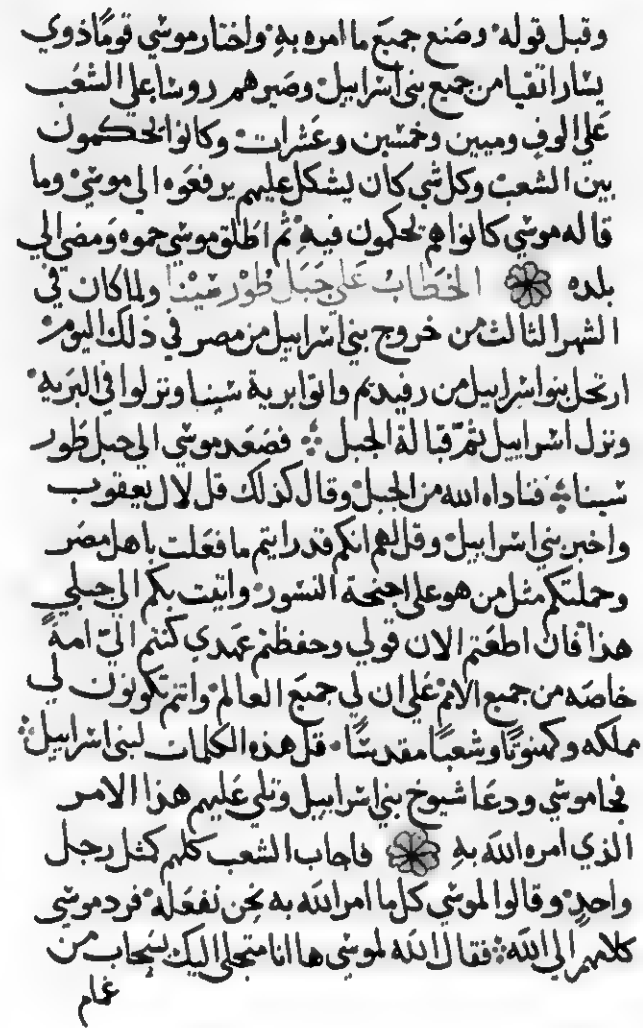 وقبل قوله وصنع جميع ما امره به واختار موسي قومًا ذوي
يسار اتقيا من جميع بني اسراييل وصيرهم روسا علي الشعب
علي الوف وميين وخمسين وعشرات وكانوا يحكمون
بين الشعب وكل شي كان يشكل عليهم يرفعوه الي موسي وما
قاله موسي كانوا هم يحكمون فيه ثم اطلق موسي حموه ومضي الي
بلده الخطاب علي جبل طور سينا ولما كان في
الشهر الثالث من خروج بني اسراييل من مصر في ذلك اليوم
ارتحل بنوا سراييل من رفيديم واتوا برية سينا ونزلوا في البرية
ونزل اسراييل ثم قبالة الجبل فصعد موسي الي جبل طور
سينا فناداه الله من الجبل وقال كذلك قل لال يعقوب
واخبر بني اسراييل وقل لهم انكم قد رايتم ما فعلت باهل مصر
وحملتكم مثل من هو علي اجنحة النسور واتيت بكم الي جبلي
هذا فان اطعتم الان قولي وحفظتم عهدي كنتم اليّ امةً
خاصه من جميع الامم علي ان لي جميع العالم وانتم تكونون لي
مملكه وكهنوتًا وشعبًا مقدسًا قل هذه الكلمات لبني اسراييل
فجا موسي ودعا شيوخ بني اسراييل وتلي عليهم هذا الامر
الذي امره الله به فاجاب الشعب كلهم كمثل رجل
واحد وقالوا لموسي كل ما امر الله به نحن نفعله فرد موسي
كلامهم الي الله فقال الله لموسي ها انا متجلي اليك بسحاب من
غمام